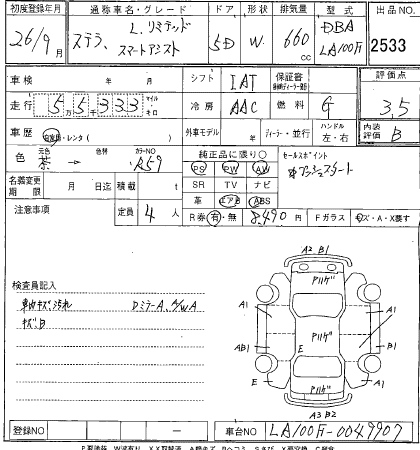 初度登録年月 通称車名・グレード ドア 形状 排気量 型式 出品NO
26/9月 ステラ、L.リミテッド スマートアシスト 5D W. 660cc DBA LA100F 2533
車検 年 月 シフト IAT 保証書 評価点
走行 5万5千333 マイル キロ 冷房 AAC 燃料 G 3,5
車歴 自家用・レンタ( ) 外車モデル 年 ディーラー・並行 ハンドル 左・右 内装評価 B
色 元色 茶 → 色替 カラーNO A59 純正品に限り○ セールスポイント
PS PW AW プッシュスタート
名義変更期限 月 日迄 積載 t SR TV ナビ
革 エアB ABS
注意事項 定員 4人 R券 有・無 8,490円 Fガラス キズ・A・X要す
検査員記入
車内キズ汚れ DミラーA、A/WA
キズ、B
A2 B1
Pハゲ
A1 A1
Pハゲ
AB1 B1
E
E A1
Pハゲ
A3 B2
登録NO ー 車台NO LA100F-0049907